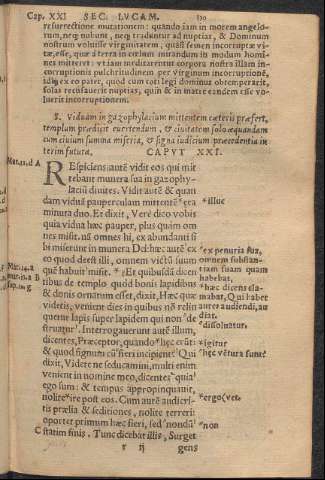 Cap. XXI SEC. LVCAM. 130
resurrectione mutationem: quando iam in morem angelo-
rum, neq; nubunt, neq; traduntur ad nuptias, & Dominum
nostrum voluisse virginitatem, quasi semen incorruptæ vi-
tæ esse, quæ à terra in cœlum mirandum in modum homi-
nes mitteret: vt iam meditarentur corpora nostra illam in-
corruptionis pulchritudinem per virginum incorruptionẽ,
idq; ex eo patet, quòd cum tot legi dominus obtemperarit,
solas recusauerit nuptias, quin & in matre eandem esse vo-
luerit incorruptionem.
§. Viduam in gazophylacium mittentem cæteris præfert,
templum prædicit euertendum, & ciuitatem solo æquandam
cum ciuium summa miseria, & signa iudicium præcedentia in-
terim futura. CAPVT XXI.
Mar.12.d A
REspiciens autẽ vidit eos qui mit
tebant munera sua in gazophy-
lacium diuites. Vidit autẽ & quan
dam viduã pauperculam mittentẽ * æra
minuta duo. Et dixit, Verè dico vobis
quia vidua hæc pauper, plus quàm om
nes misit. nã omnes hi, ex abundanti si
bi miserunt in munera Dei: hæc autẽ ex
eo quod deest illi, omnem victũ suum
quẽ habuit misit. * Et quibusdã dicen
tibus de templo quòd bonis lapidibus
& donis ornatum esset, dixit, Hæc quæ
videtis, venient dies in quibus nõ relin
quetur lapis super lapidem qui non de
struatur. Interrogauerunt autẽ illum,
dicentes, Præceptor, quando hæc erũt:
& quod signum cũ fieri incipient? Qui
dixit, Videte ne seducamini, multi enim
venient in nomine meo, dicentes quia
ego sum: & tempus appropinquauit,
nolite ire post eos. Cum autẽ audieri-
tis prælia & seditiones, nolite terreri:
oportet primum hæc fieri, sed nondũ
C statim finis. Tunc dicebat illis, Surget
* illuc
* ex penuria sua,
omnem substan-
tiam suam quam
habebat.
* hæc dicens cla-
mabat, Qui habet
aures audiendi, au
diat.
* dissoluatur.
* igitur
* hęc vẽtura sunt?
* ergo
* non
Mat.24.a
Mar.13.a B
r ij gens